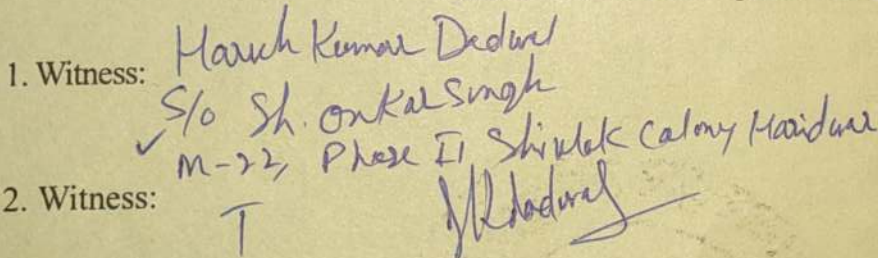 1. Witness: Harish Kumar Dadwal
S/o Sh. Onkar Singh
M-22, Phase II, Shivalok Colony Haridwar
2. Witness: